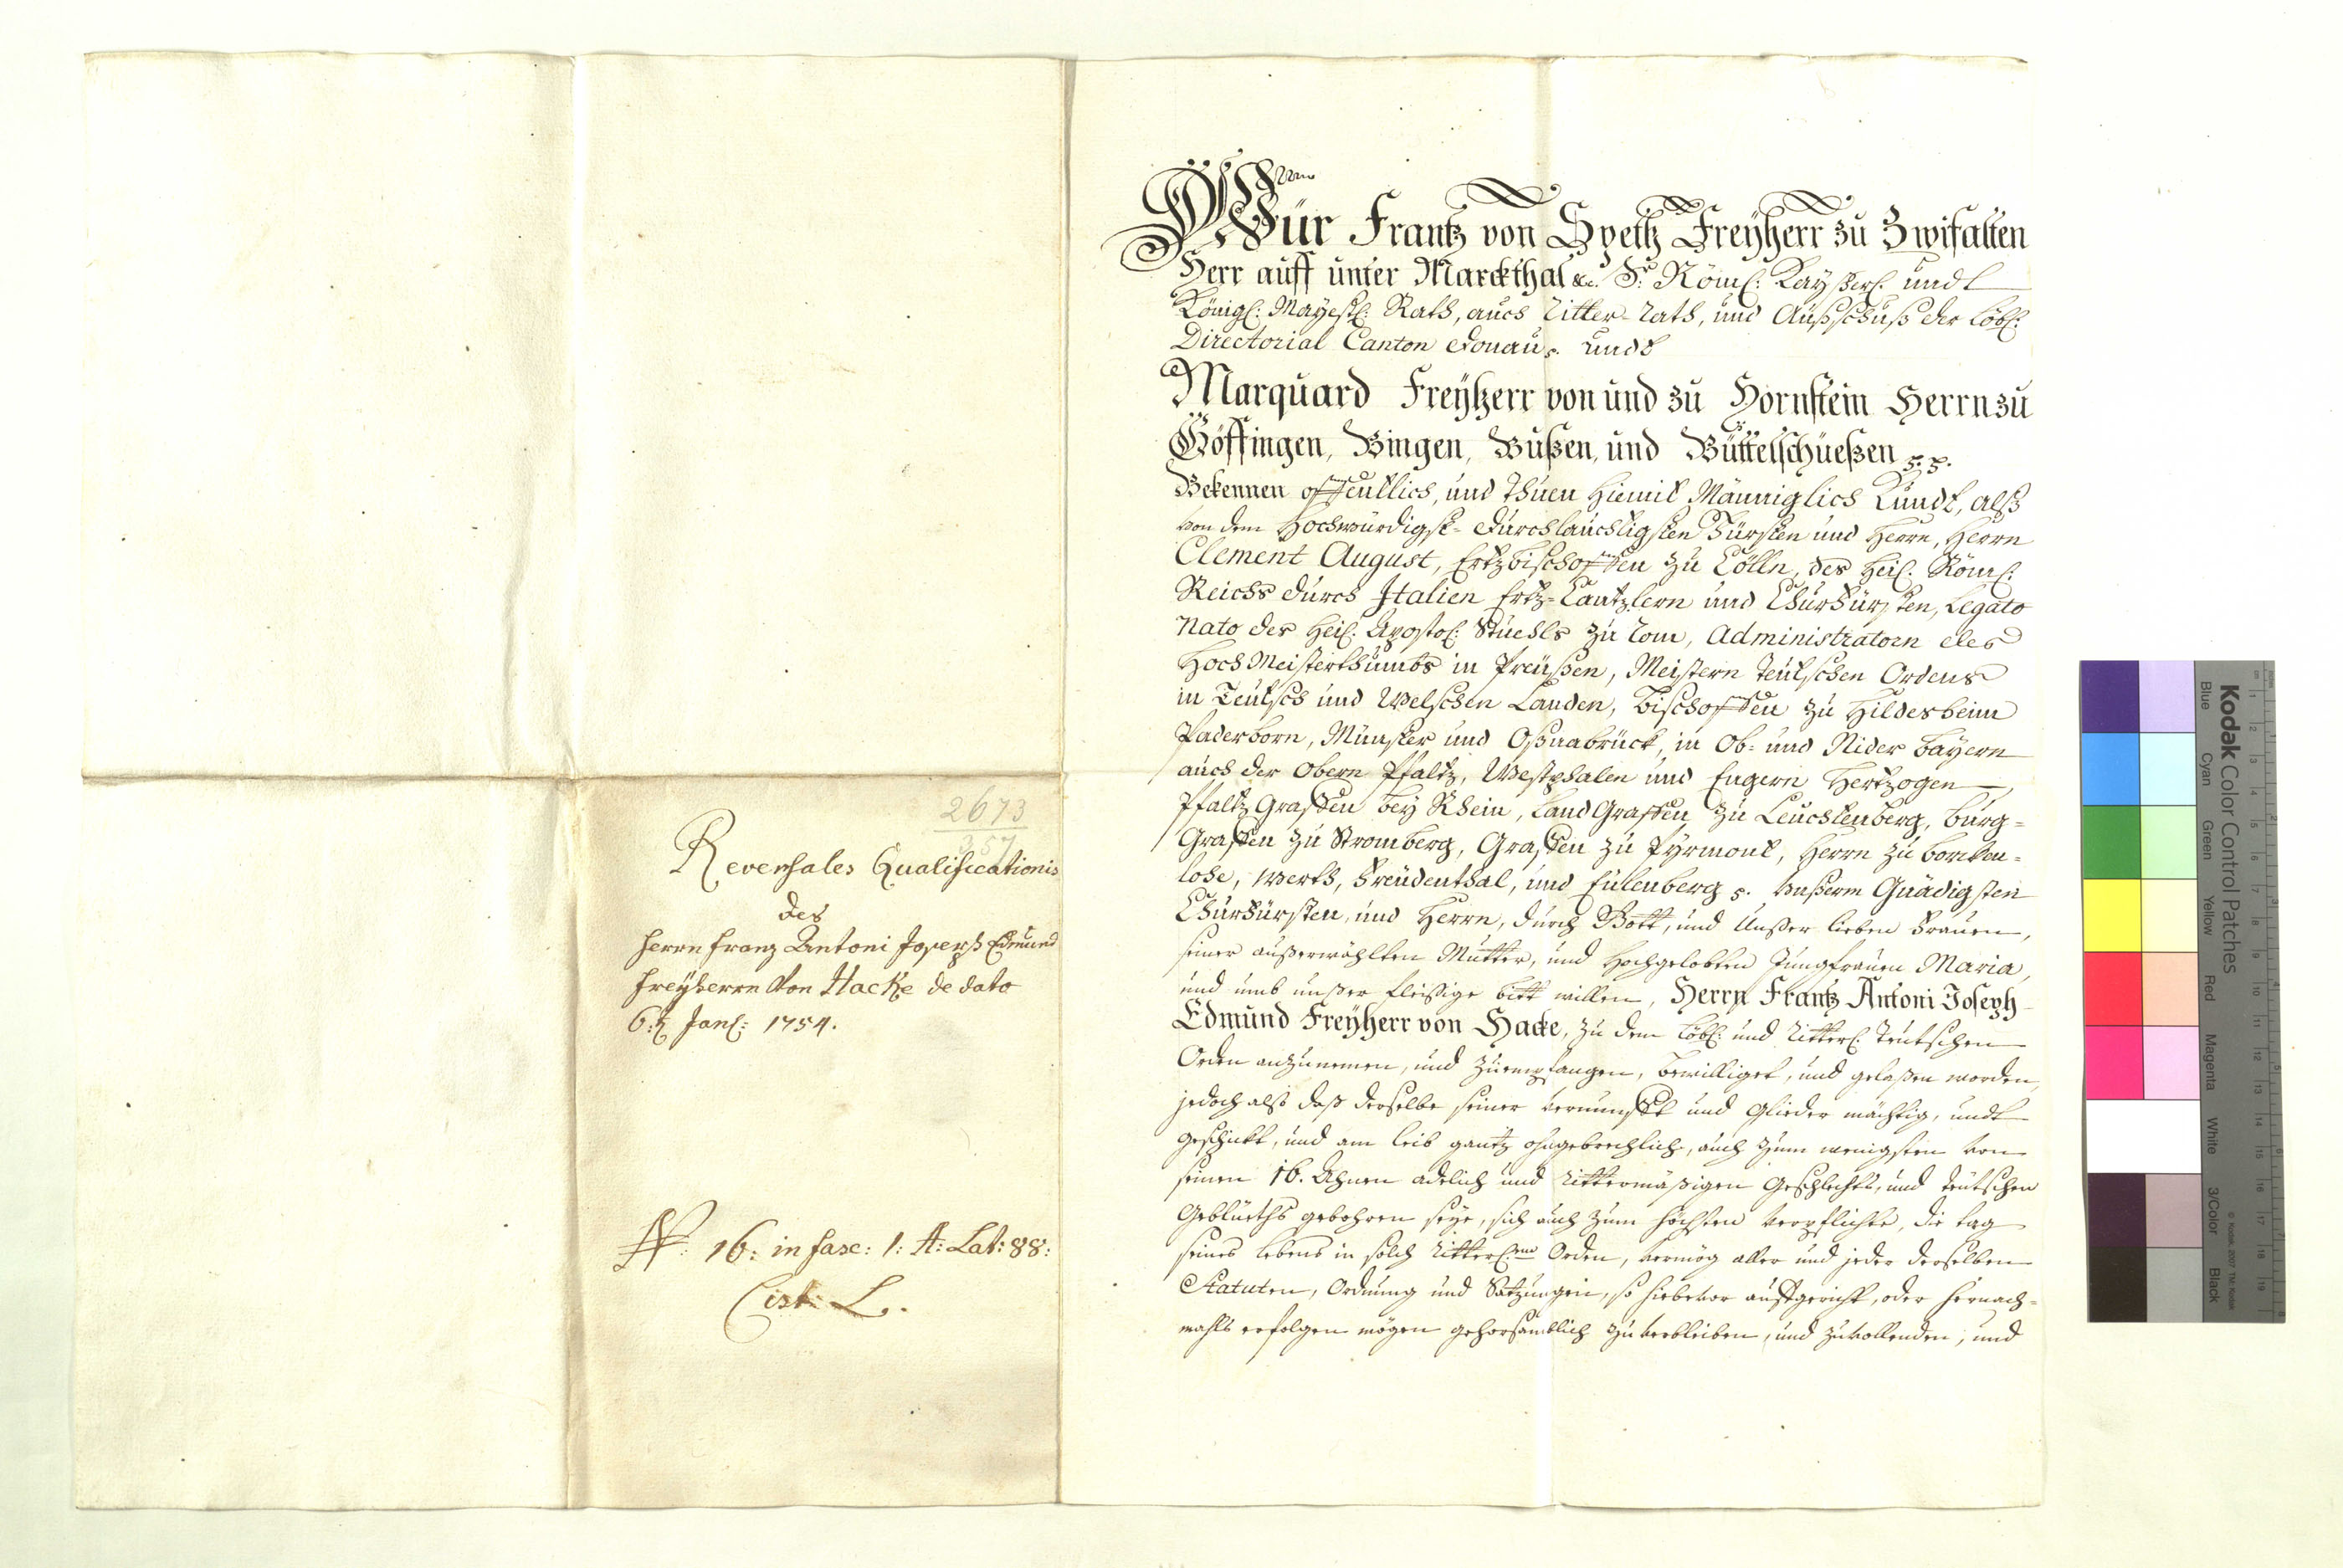 2673
357
Reversales Qualificationis
des
Herrn Franz Antoni Joseph Edmund
Freyherrn Von Hacke de dato
6:t Janl: 1754.
N: 16: in fasc: 1: A: Lat: 88:
Cist: L.
Wür Frantz von Speth Freÿherr zu Zwifalten
Herr auff unter Marckthal &c. Sr. Röml: Kayßerl. undt
Königl: Mayestl: Rath, auch Ritter-Rath, und Außschuß der Löbl:
Directorial Canton Donau p. undt
Marquard Freÿherr von und zu Hornstein Herrn zu
Göffingen, Bingen, Bußen, und Büttelschüeßen p. p.
Bekennen offentlich, und Thuen hiemit Männiglich Kundt, alß
von dem Hochwürdigst- Durchlauchtigsten Fürsten und Herrn, Herrn
Clement August, Ertzbischoffen zu Cölln, des Heil. Röml:
Reichs durch Italien Ertz-Cantzlern und Churfürsten, Legato
Nato des Heil. Apostol: Stuehls zu Rom, Administratorn des
Hoch Meisterthumbs in Preußen, Meistern Teutschen Ordens
in Teutsch und Welschen Landen, Bischoffen zu Hildesheim
Paderborn, Münster und Oßnabrück, in Ob- und Nider Bayern
auch der Obern Pfaltz, Westphalen und Engern Hertzogen,
Pfaltz Graffen bey Rhein, Land Graffen zu Leuchtenberg, Burg-
Graffen zu Stromberg, Graffen zu Pyrmont, Herrn zu Borcken-
lohe, Werth, Freudenthal, und Eulenberg p. unßerm Gnädigsten
Churfürsten, und Herrn, durch Gott, und Unßer lieben Frauen,
seiner außerwöhlten Mutter, und Hochgelobten Jungfrauen Maria,
und umb unßer fleißige bitt willen, Herrn Frantz Antoni Joseph
Edmund Freÿherr von Hacke, zu dem Löbl: und Ritterl: Teutschen
Orden anzunemen, und zuempfangen, bewilliget, und gelaßen worden,
jedoch alß daß derselbe seiner vernunfft und Glieder mächtig, undt
geschickt, und am leib gantz ohngebrechlich, auch zum wenigsten von
seinen 16. Ahnen adelich und Rittermäßigen Geschlechts, und teutschen
Geblüeths gebohren seye, sich auch zum höchsten verpflichte, die tag
seines lebens in solch Ritterl:en Orden, vermög aller und jeder desselben
Statuten, Ordnung und Satzungen, so hiebevor aufgericht, oder hernach-
mahls erfolgen mögen gehorsamblich zu verbleiben, und zuvollenden, und